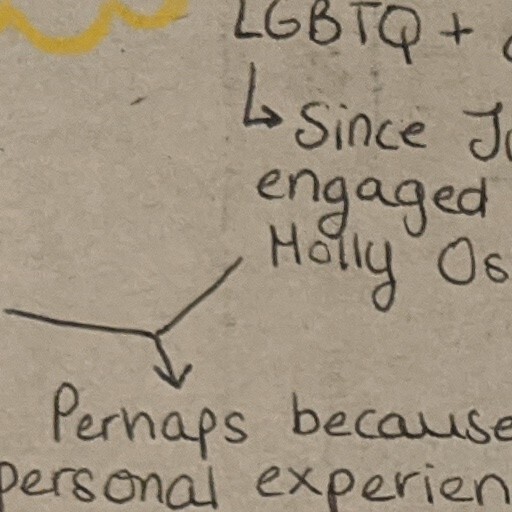 LGBTQ +
↳ Since
engaged
Holly Os
Perhaps because
personal experien